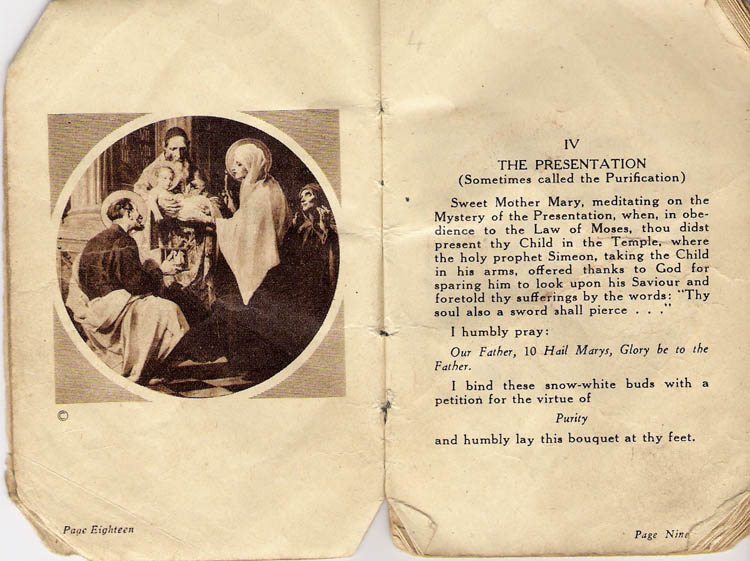 ©
Page Eighteen
4
IV
THE PRESENTATION
(Sometimes called the Purification)
Sweet Mother Mary, meditating on the
Mystery of the Presentation, when, in obe-
dience to the Law of Moses, thou didst
present thy Child in the Temple, where
the holy prophet Simeon, taking the Child
in his arms, offered thanks to God for
sparing him to look upon his Saviour and
foretold thy sufferings by the words: "Thy
soul also a sword shall pierce . . ."
I humbly pray:
Our Father, 10 Hail Marys, Glory be to the
Father.
I bind these snow-white buds with a
petition for the virtue of
Purity
and humbly lay this bouquet at thy feet.
Page Nine